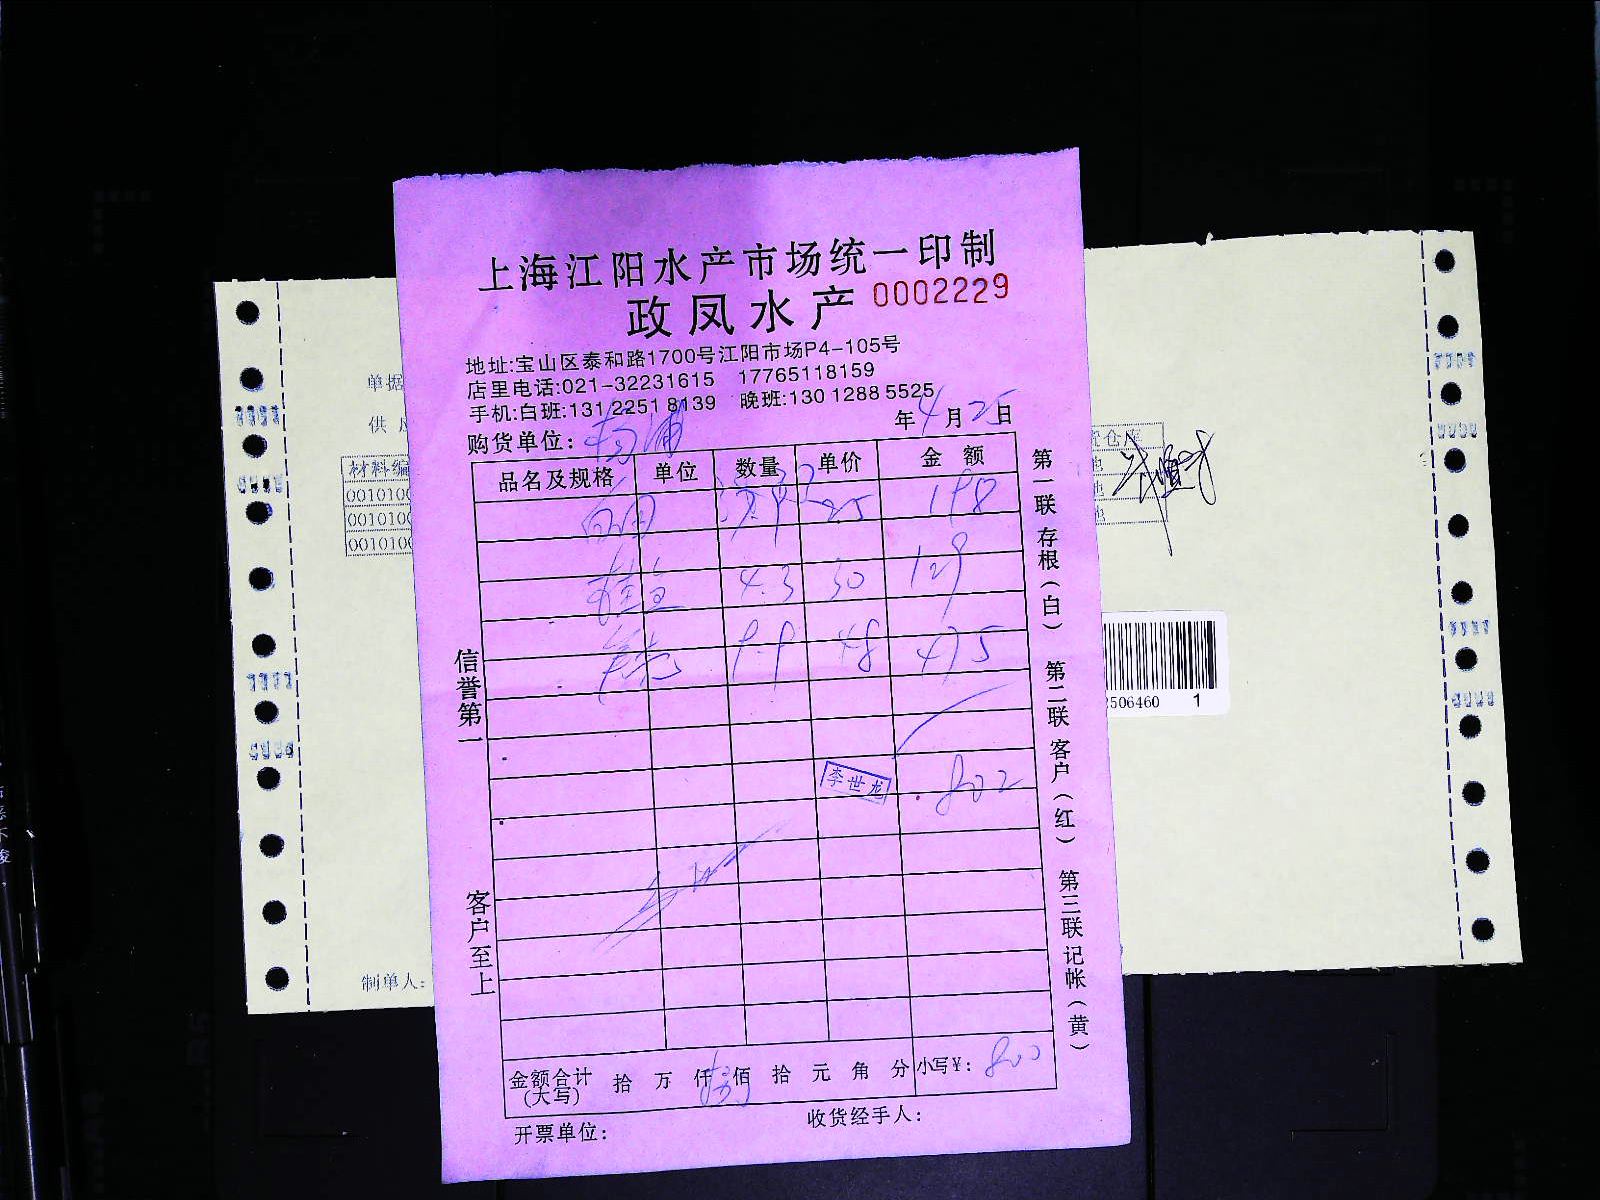 上海江阳水产市场统一印制
政凤水产 0002229
地址:宝山区泰和路1700号江阳市场P4-105号
店里电话:021-32231615 17765118159
手机:白班:131 2251 8139 晚班:130 1288 5525
购货单位: 杨浦 年 4 月 25 日
品名及规格 单位 数量 单价 金额
25 198
桂鱼 4.3 30 129
9.9 48 475
李世龙 802
金额合计(大写) 拾 万 仟 捌 佰 拾 元 角 分 小写¥: 800
开票单位: 收货经手人:
信誉第一
客户至上
第一联 存根(白) 第二联 客户(红) 第三联 记帐(黄)
单据
供应
材料编
0010100
0010100
0010100
制单人:
仓库
2506460 1